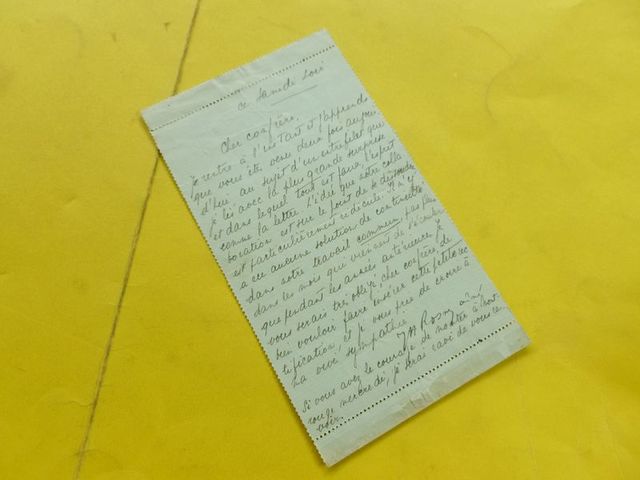 ce Samedi Soir
Cher confrère,
Je rentre à l'instant et j'apprends
que vous êtes venu deux fois aujour-
d'hui au sujet d'un entrefilet que
je lis avec la plus grande surprise
et dans lequel tout est faux, l'esprit
comme la lettre. L'idée que notre colla
boration est sur le point de se dissoudre
est particulièrement ridicule. Il n'y
a eu aucune solution de continuité
dans notre travail commun, pas plus
dans les mois que viennent de s'écouler
que pendant les années antérieures. Je
vous serais très obligé, cher confrère, de
bien vouloir faire insérer cette petite rec
tification, et je vous prie de croire à
ma vive sympathie
J H Rosny aîné
Si vous avez le courage de monter à Mont-
rouge mercredi, je serai ravi de vous re
voir.